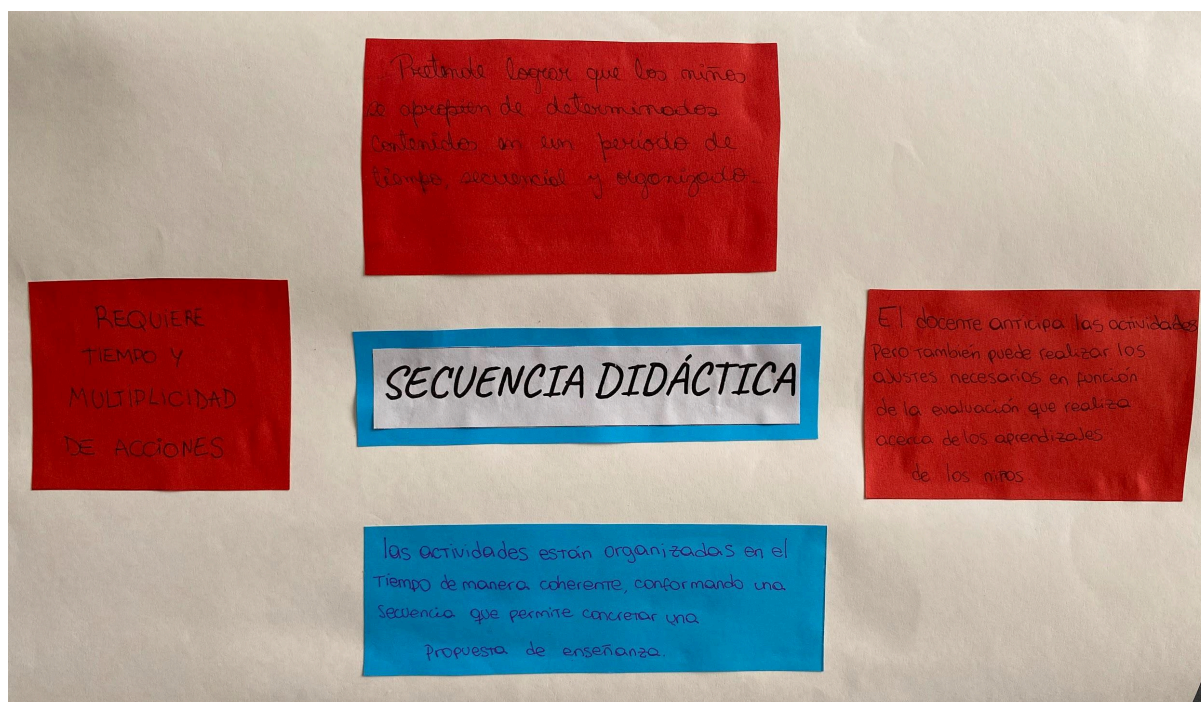 Pretende lograr que los niños
se apropien de determinados
contenidos en un período de
tiempo, secuencial y organizado.
REQUIERE
TIEMPO Y
MULTIPLICIDAD
DE ACCIONES
SECUENCIA DIDÁCTICA
El docente anticipa las actividades
Pero también puede realizar los
ajustes necesarios en función
de la evaluación que realiza
acerca de los aprendizajes
de los niños
las actividades están organizadas en el
Tiempo de manera coherente, conformando una
Secuencia que permite concretar una
Propuesta de enseñanza.